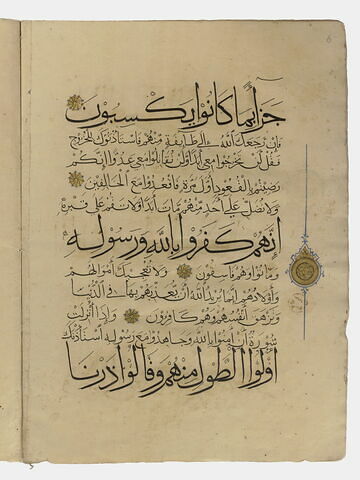 جزاء بما كانوا يكسبون
فان رجعك الله الى طايفة منهم فاستاذنوك للخروج
فقل لن تخرجوا معى ابدا ولن تقاتلوا معى عدوا انكم
رضيتم بالقعود اول مرة فاقعدوا مع الخالفين
ولا تصل على احد منهم مات ابدا ولا تقم على قبره
انهم كفروا بالله ورسوله
وماتوا وهم فاسقون ولا تعجبك اموالهم
واولادهم انما يريد الله ان يعذبهم بها فى الدنيا
وتزهق انفسهم وهم كافرون واذا انزلت
سورة ان امنوا بالله وجاهدوا مع رسوله استاذنك
اولوا الطول منهم وقالوا ذرنا